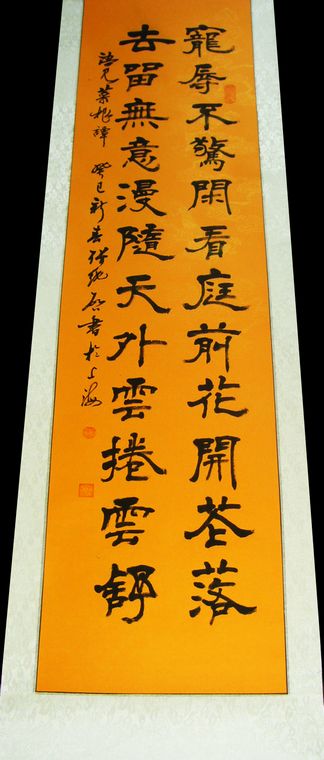 寵辱不驚閑看庭前花開花落
去留無意漫隨天外雲捲雲舒
癸巳新春 書於上海